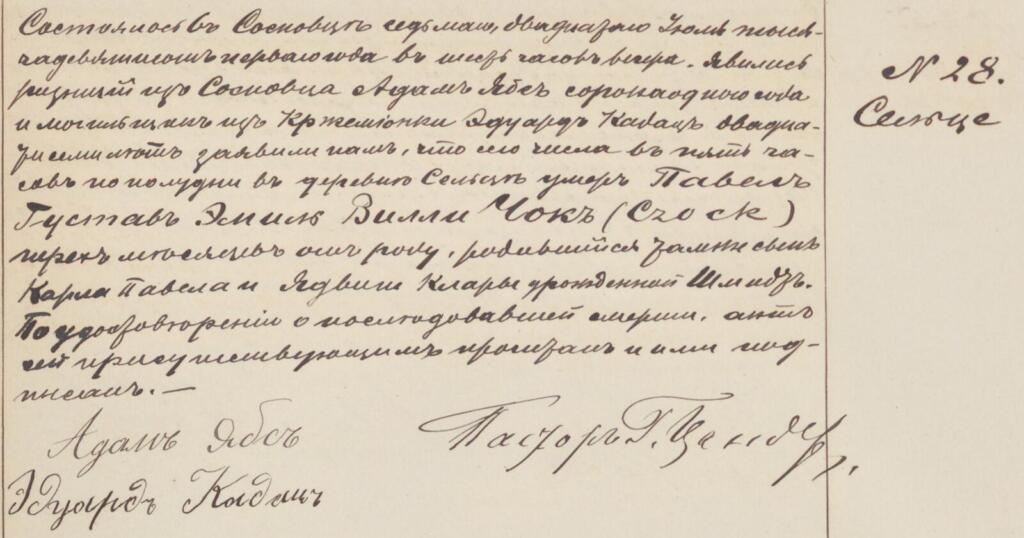 Состоялось въ Сосновцѣ седьмаго, двадцатаго Іюля тыся-
ча девятисотъ перваго года въ шесть часовъ вечера. Явились
рѣзчикъ изъ Сосновца Адамъ Ябсъ сорока одного года
и могильщикъ изъ Кржеміонки Эдуардъ Кабацъ двадца-
ти семи лѣтъ заявили намъ, что сего числа въ пять ча-
совъ по полудни въ деревнѣ Сельцѣ умеръ Павелъ
Густавъ Эмиль Вилли Чокъ (Czock)
трехъ мѣсяцевъ отъ роду, родившійся тамже сынъ
Карла Павела и Ядвиги Клары урожденной Шмидтъ.
По удостовѣреніи о послѣдовавшей смерти, актъ
сей присутствующимъ прочитанъ и ими под-
писанъ. —
Адамъ Ябсъ
Пасторъ Г. Цандеръ.
Эдуардъ Кабацъ
N 28.
Сельце